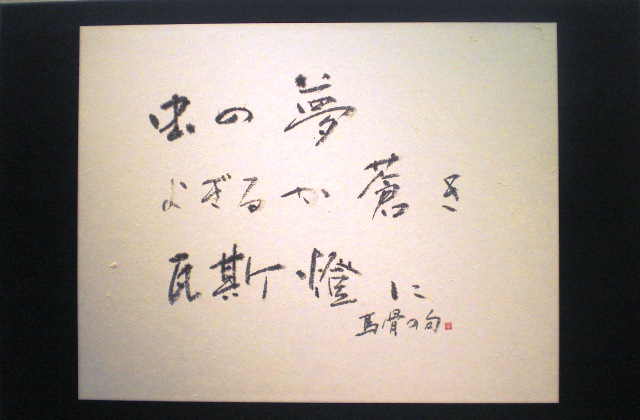 虫の夢
よぎるか蒼き
瓦斯燈に
馬骨の句